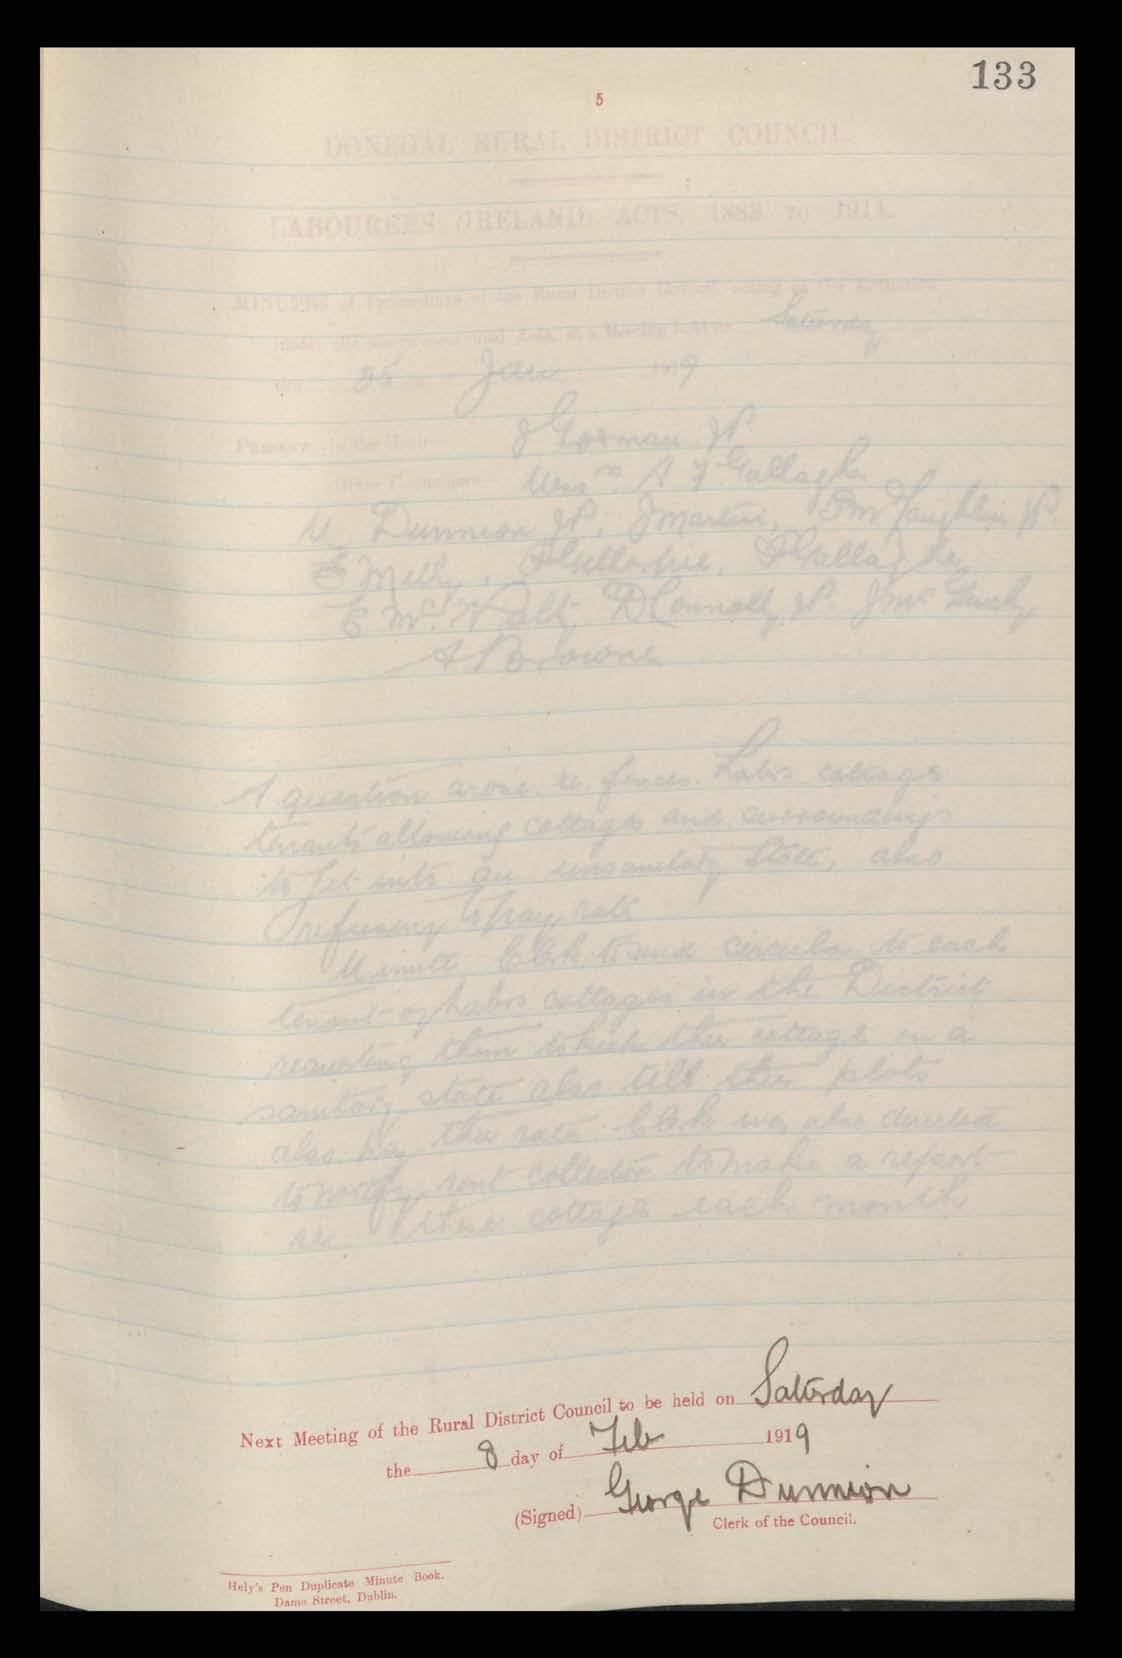 133
5
DONEGAL RURAL DISTRICT COUNCIL.
LABOURERS (IRELAND) ACTS, 1883 TO 1911.
MINUTES of Proceedings of the Rural District Council, acting as the Authority
under the above-mentioned Acts, at a Meeting held on Saturday
the 25 day of Jan 1919
PRESENT:—In the Chair— J Gorman JP
Other Members— Messrs A F Gallagher
M Dunnion JP, J Martin, McLaughlin JP
E Melly, Gillespie, Gallagher
E McNulty, D Connolly JP. J Mc
A P Browne
A question arose re fences. Labrs cottages
tenants allowing cottages and surroundings
to get into an unsanitary state, also
refusing to pay rate
Minute Clerk to send circular to each
tenant of Labrs cottages in the District
requesting them to keep their cottage in a
sanitary state also till their plots
also pay their rate. Clerk was also directed
to notify rent collector to make a report
re these cottages each month
Next Meeting of the Rural District Council to be held on Saturday
the 8 day of Feb 1919
(Signed) George Dunnion
Clerk of the Council.
Hely's Pen Duplicate Minute Book.
Dame Street, Dublin.